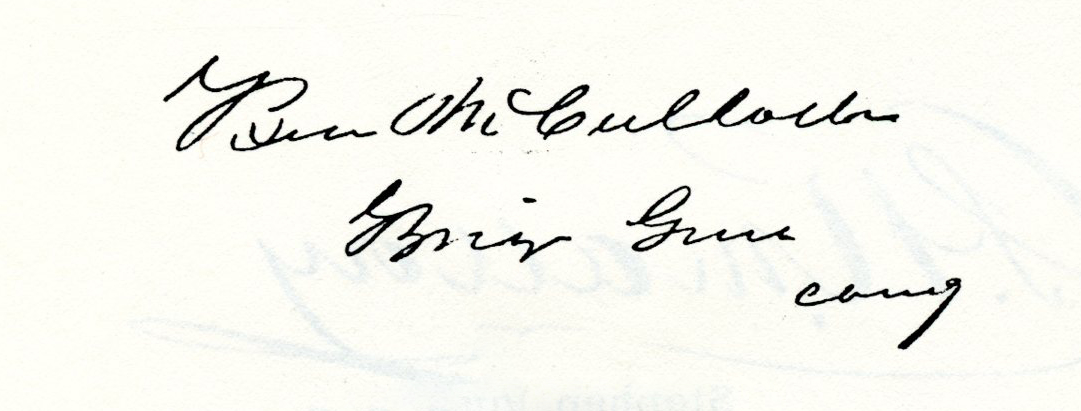 Ben McCulloch
Brig Gen
comg